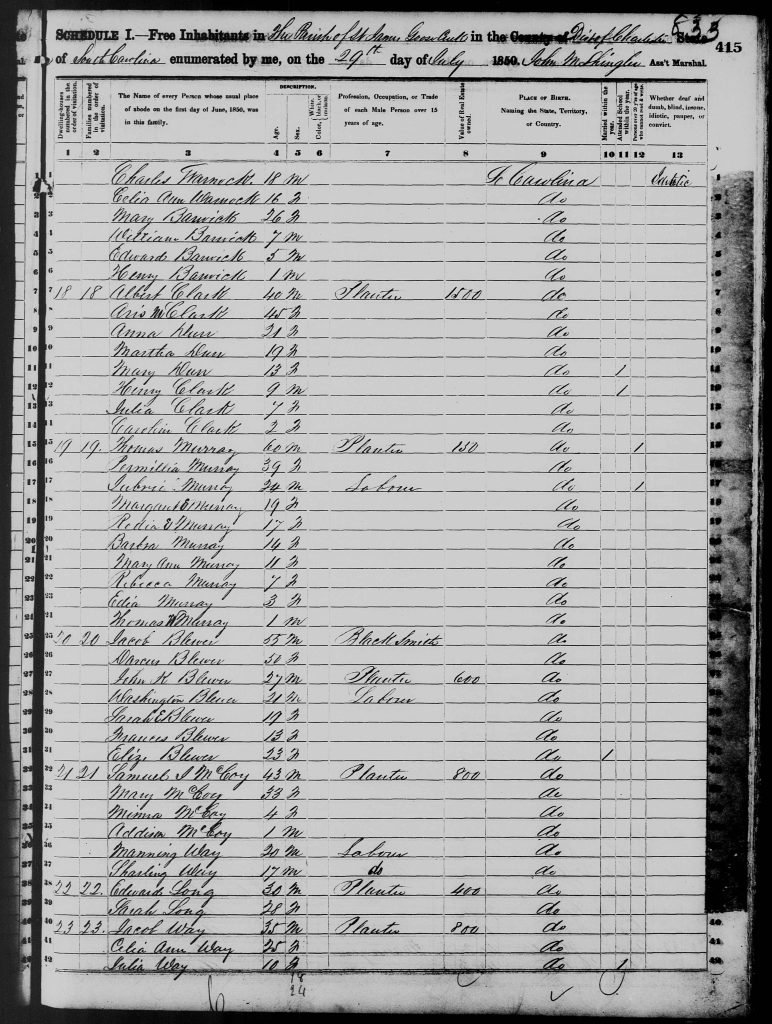 533
SCHEDULE I.—Free Inhabitants in The Parish of St James Goose Creek in the County of Dist of Charleston State 415
of South Carolina enumerated by me, on the 29th day of July 1850. John M Shingler Ass't Marshal.
Dwelling-houses numbered in the order of visitation. Families numbered in the order of visitation. The Name of every Person whose usual place of abode on the first day of June, 1850, was in this family. DESCRIPTION. Age. Sex. Color, White, black, or mulatto. Profession, Occupation, or Trade of each Male Person over 15 years of age. Value of Real Estate owned. PLACE OF BIRTH. Naming the State, Territory, or Country. Married within the year. Attended School within the year. Persons over 20 y'rs of age who cannot read & write. Whether deaf and dumb, blind, insane, idiotic, pauper, or convict.
1 2 3 4 5 6 7 8 9 10 11 12 13
1 Charles Warnock 18 M S Carolina Idiotic
2 Celia Ann Warnock 16 F do
3 Mary Barwick 26 F do
4 William Barwick 7 M do
5 Edward Barwick 5 M do
6 Henry Barwick 1 M do
7 18 18 Albert Clark 40 M Planter 1500 do
8 Aris M Clark 45 F do
9 Anna Dun 21 F do
10 Martha Dun 19 F do
11 Mary Dun 13 F do 1
12 Henry Clark 9 M do 1
13 Julia Clark 7 F do
14 Caroline Clark 2 F do
15 19 19. Thomas Murray 60 M Planter 150 do 1
16 Permillia Murray 39 F do
17 Murray 24 M Labour do 1
18 Margaret E Murray 19 F do
19 Murray 17 F do
20 Barbra Murray 14 F do
21 Mary Ann Murray 11 F do
22 Rebecca Murray 7 F do
23 Edia Murray 3 F do
24 Thomas W Murray 1 M do
25 20 20 Jacob Blewer 55 M Black Smith do
26 Darcus Blewer 50 F do
27 John K Blewer 27 M Planter 600 do
28 Washington Blewer 21 M Labour do
29 Sarah E Blewer 19 F do
30 Frances Blewer 13 F do
31 Eliza Blewer 23 F do 1
32 21 21 Samuel J McCoy 43 M Planter 800 do
33 Mary McCoy 33 F do
34 Minna McCoy 4 F do
35 Addison McCoy 1 M do
36 Manning Way 20 M Labour do
37 Way 17 M do do
38 22 22. Edward Long 30 M Planter 400 do
39 Sarah Long 28 F do
40 23 23. Jacob Way 35 M Planter 800 do
41 Celia Ann Way 25 F do
42 Julia Way 10 F do 1
18
24